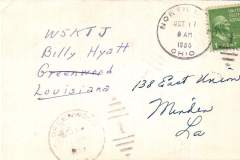 W5KTJ
Billy Hyatt
Greenwood
Louisiana
NORTH
OCT 17
8 AM
1955
OHIO
138 East Union
Minden
La